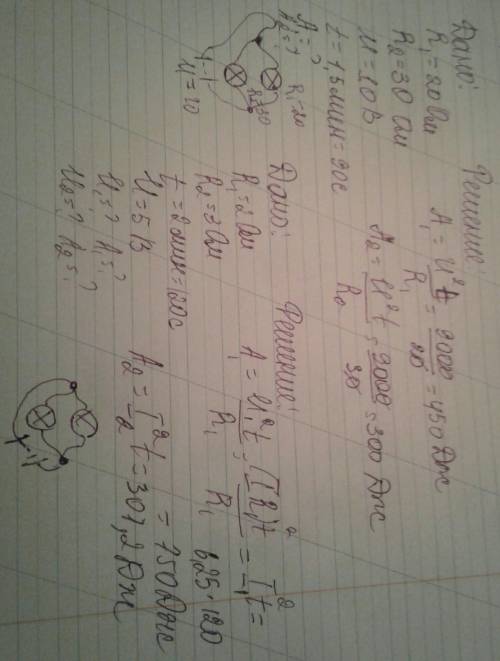 Дано:
R₁ = 20 Ом
R₂ = 30 Ом
U = 10 В
t = 1,5 мин = 90 с
A₁ - ?
A₂ - ?
Решение:
A₁ = U²t / R₁ = 9000 / 20 = 450 Дж
A₂ = U²t / R₂ = 9000 / 30 = 300 Дж
R₁=20
R₂=30
U=10
Дано:
R₁ = 2 Ом
R₂ = 3 Ом
t = 2 мин = 120 с
U = 5 В
U₁ = ? A₁ = ?
U₂ = ? A₂ = ?
Решение:
A₁ = U₁²t / R₁ = (I R₁)²t / R₁ = I₁²t =
6,25 · 120 = 750 Дж
A₂ = I₂²t = 307,2 Дж